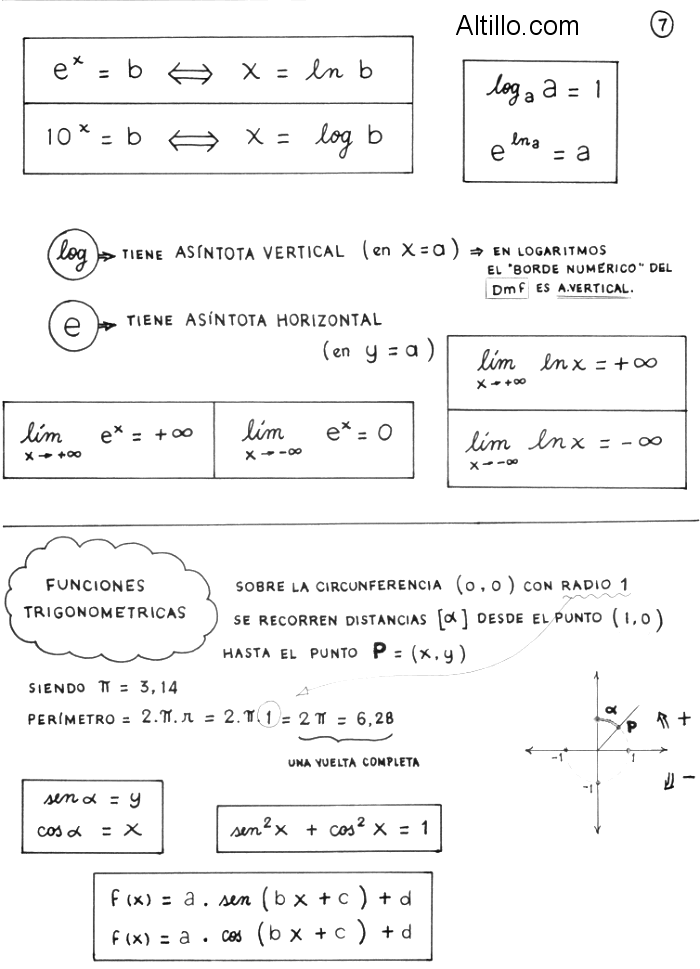 Altillo.com
7
eˣ = b ⟺ x = ln b
10ˣ = b ⟺ x = log b
logₐ a = 1
e^(ln a) = a
log → TIENE ASÍNTOTA VERTICAL (en x = a) ⇒ EN LOGARITMOS
EL "BORDE NUMÉRICO" DEL
Dmf ES A.VERTICAL.
e → TIENE ASÍNTOTA HORIZONTAL
(en y = a)
lím x→+∞ ln x = +∞
lím x→-∞ ln x = -∞
lím x→+∞ eˣ = +∞
lím x→-∞ eˣ = 0
FUNCIONES
TRIGONOMETRICAS
SOBRE LA CIRCUNFERENCIA (0,0) CON RADIO 1
SE RECORREN DISTANCIAS [α] DESDE EL PUNTO (1,0)
HASTA EL PUNTO P = (x,y)
SIENDO π = 3,14
PERÍMETRO = 2.π.r = 2.π.1 = 2π = 6,28
UNA VUELTA COMPLETA
α
P
+
-1
1
-1
-
sen α = y
cos α = x
sen²x + cos²x = 1
f(x) = a . sen (bx + c) + d
f(x) = a . cos (bx + c) + d